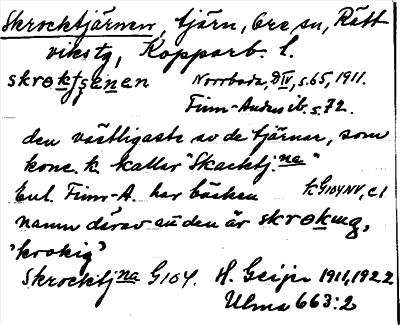 Skrocktjärnen, tjärn, Ore sn, Rätt
viks tg, Kopparb. l.
skrøktʃenen Norrboda, DIV, s. 65, 1911.
Finn-Anders ib. s. 72.
den västligaste av de tjärnar, som
konc. k. kallar "Skacktj.na"
Enl. Finn-A. har bäcken k G104NV, c1
namn därav att den är skrokug,
'krokig'
Skrocktjna G104. H. Geijer 1911, 1922
Ulma 663:2